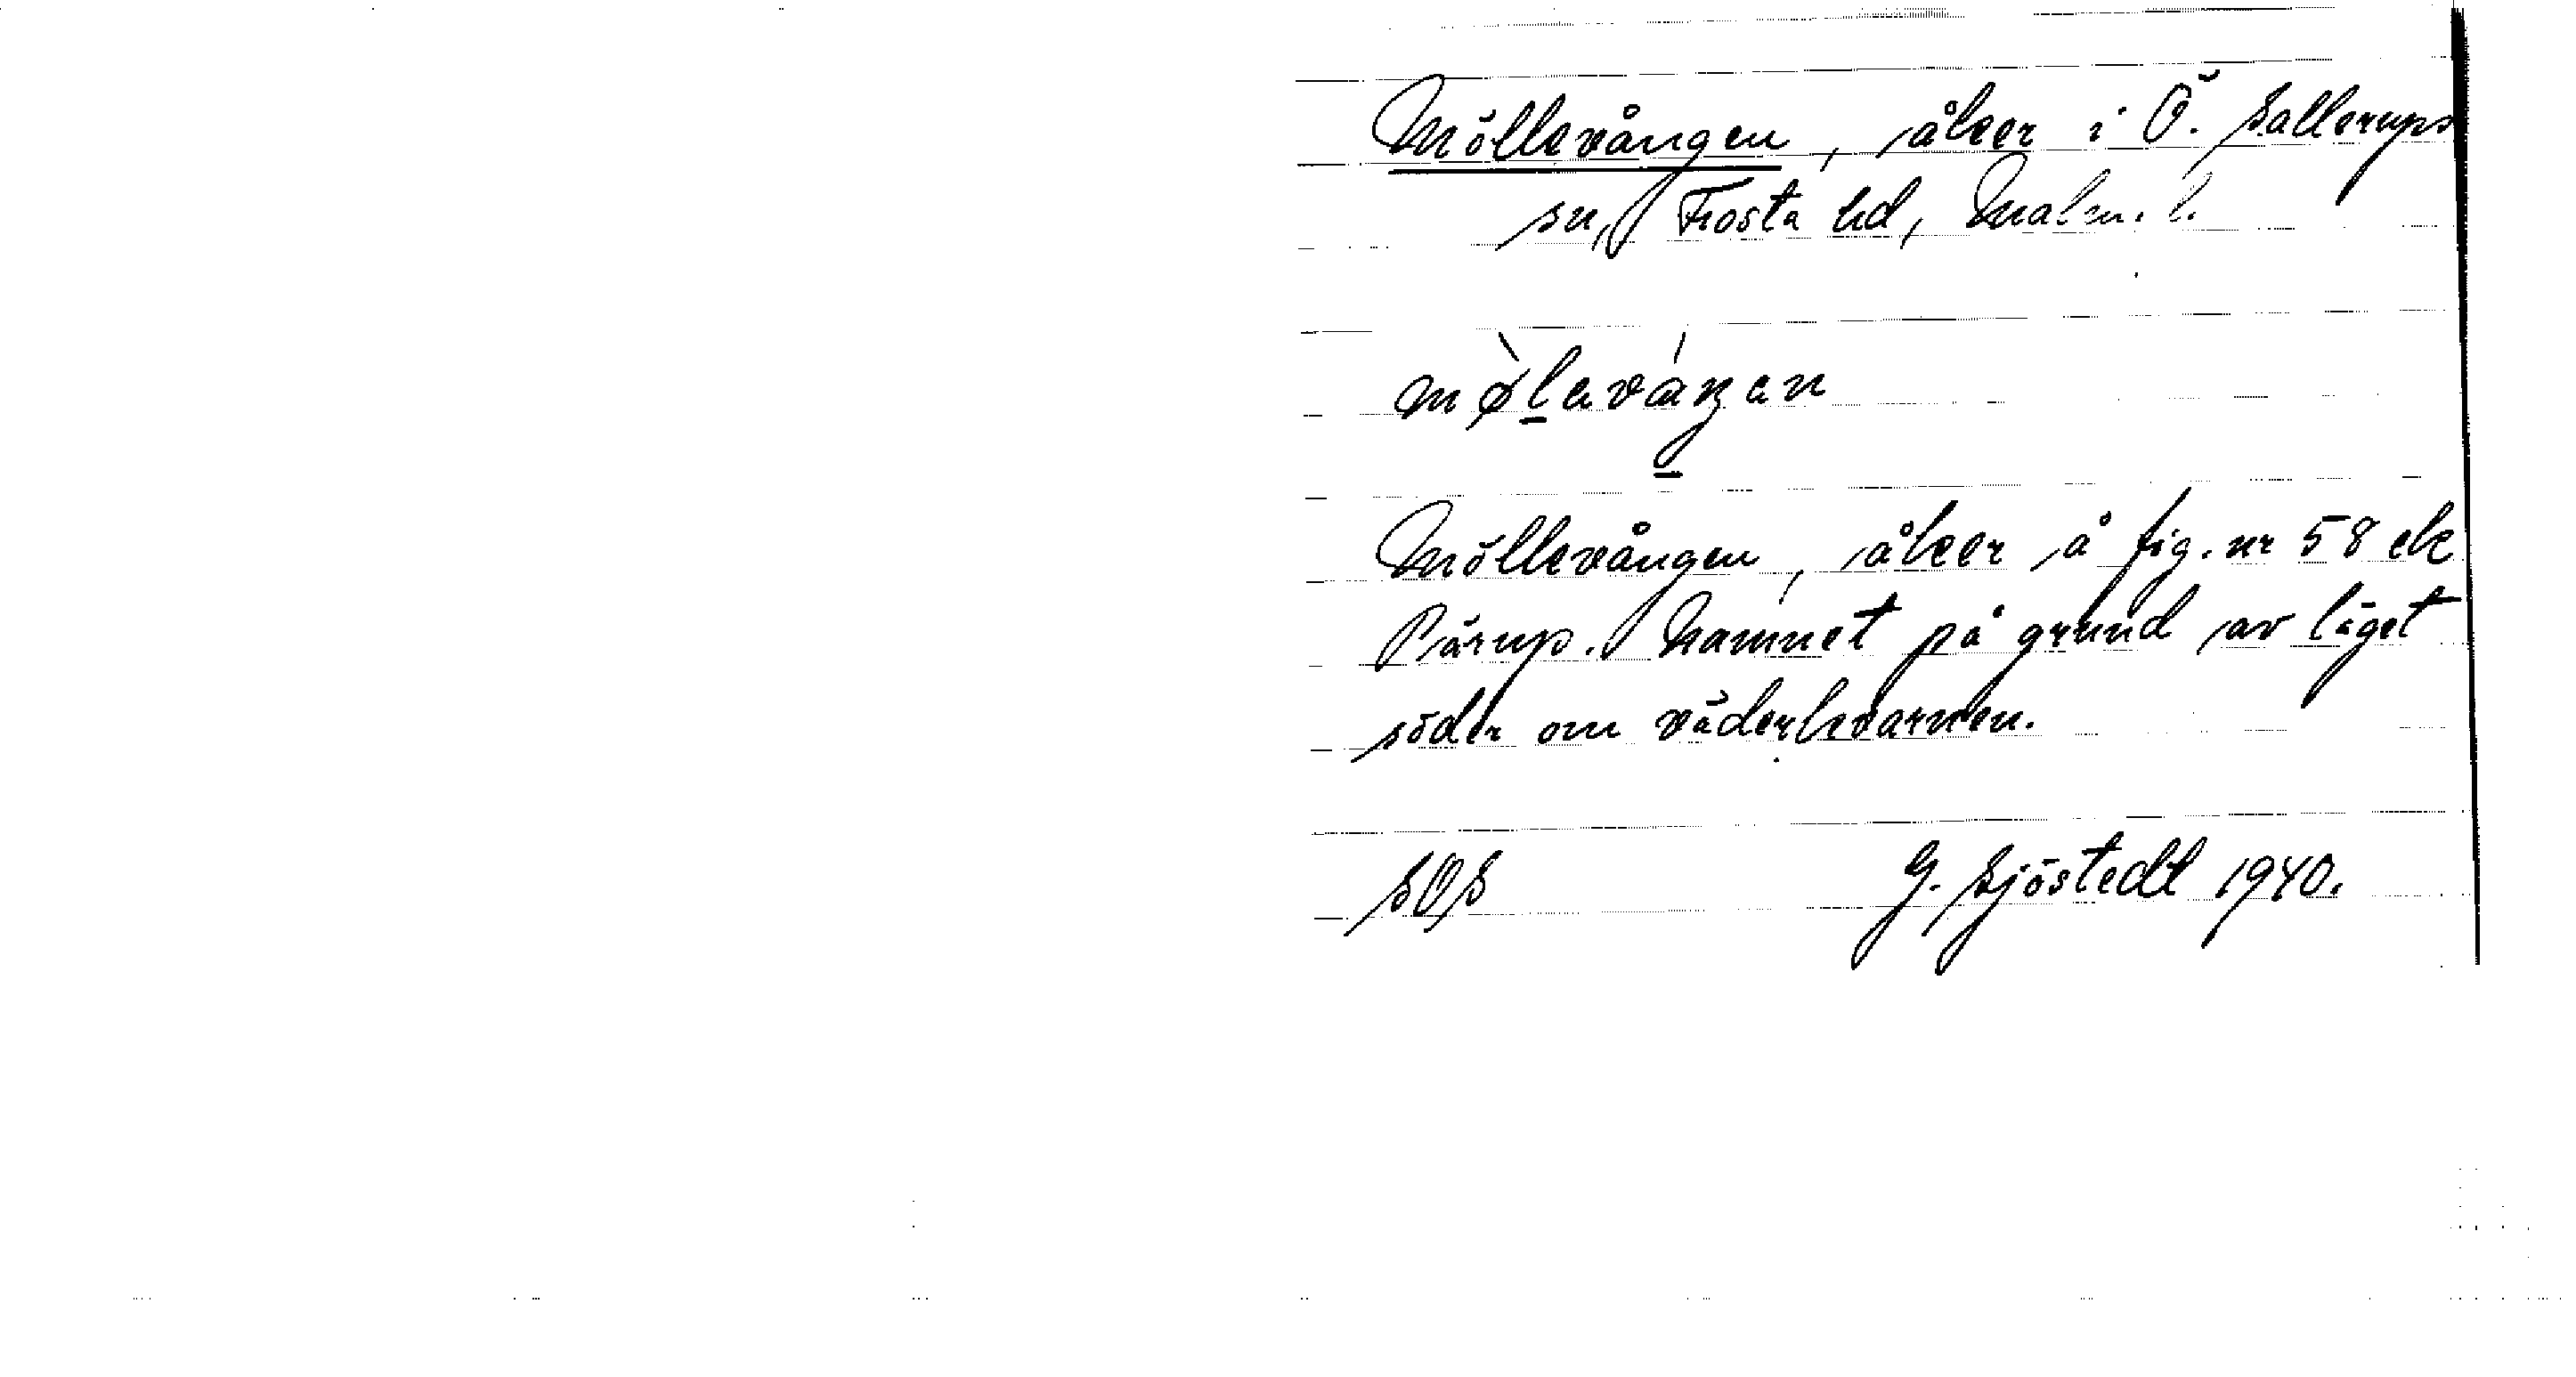 Möllevången, åker i Ö. Sallerups
sn, Frosta hd, Malm. l.
Möllevången, åker å fig. nr 58 ek
Pärup. Namnet på grund av läget
söder om väderkvarnen.
SOS G. Sjöstedt 1940.